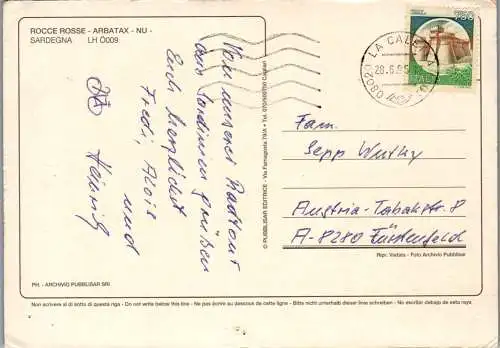 ROCCE ROSSE - ARBATAX - NU -
SARDEGNA LH Ö009
Von unserer Radtour
aus Sardinien grüßen
Euch herzlichst
Fredi, Alois
und
Heinrich
© PUBBLISAR EDITRICE - Via Famagosta 79/A - Tel. 070/500750 Cagliari
750
ITALIA
08020 LA CALETTA
28.6.95
Fam.
Sepp Wutky
Austria-Tabakstr. 8
A-8280 Fürstenfeld
Ripr. Vietata - Foto Archivio Pubblisar
PH. - ARCHIVIO PUBBLISAR SRl
Non scrivere al di sotto di questa riga - Do not write below this line - Ne pas écrire au dessous de cette ligne - Bitte nicht unterhalb dieser line schreiben - No escribir debajo de esta raya